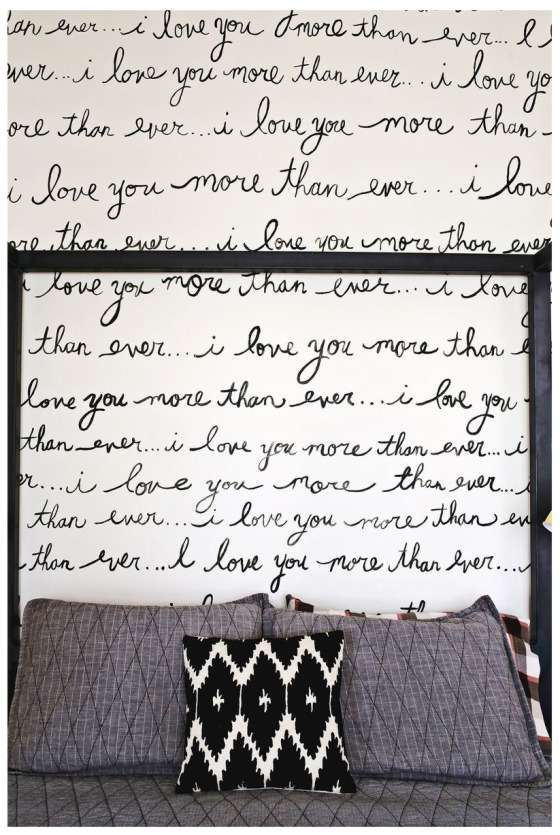 than ever...i love you more than ever... I l
ever...i love you more than ever...i love yo
ore than ever...i love you more than
i love you more than ever...i love
ore than ever...i love you more than ever
i love you more than ever...i love
than ever...i love you more than e
love you more than ever...i love you
than ever...i love you more than ever...i
er...i love you more than ever...
than ever...i love you more than ev
than ever...I love you more than ever...